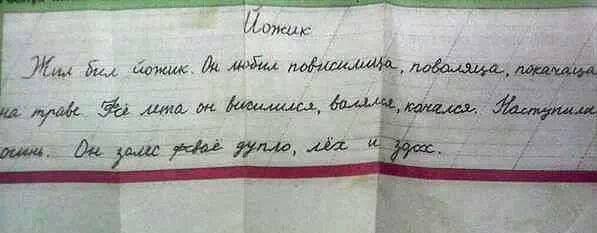 Йожик
Жил бил йожик. Он любил повисилица, поваляца, покачаца
на траве. Fсё лета он висилился, валялся, качался. Наступила
осинь. Он залес фсваё дупло, лёх и здох.